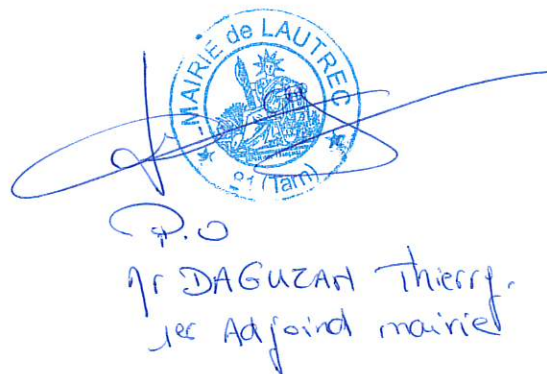 MAIRIE de LAUTREC
81 (Tarn)
P.O
Mr DAGUZAN Thierry.
1er Adjoind mairie